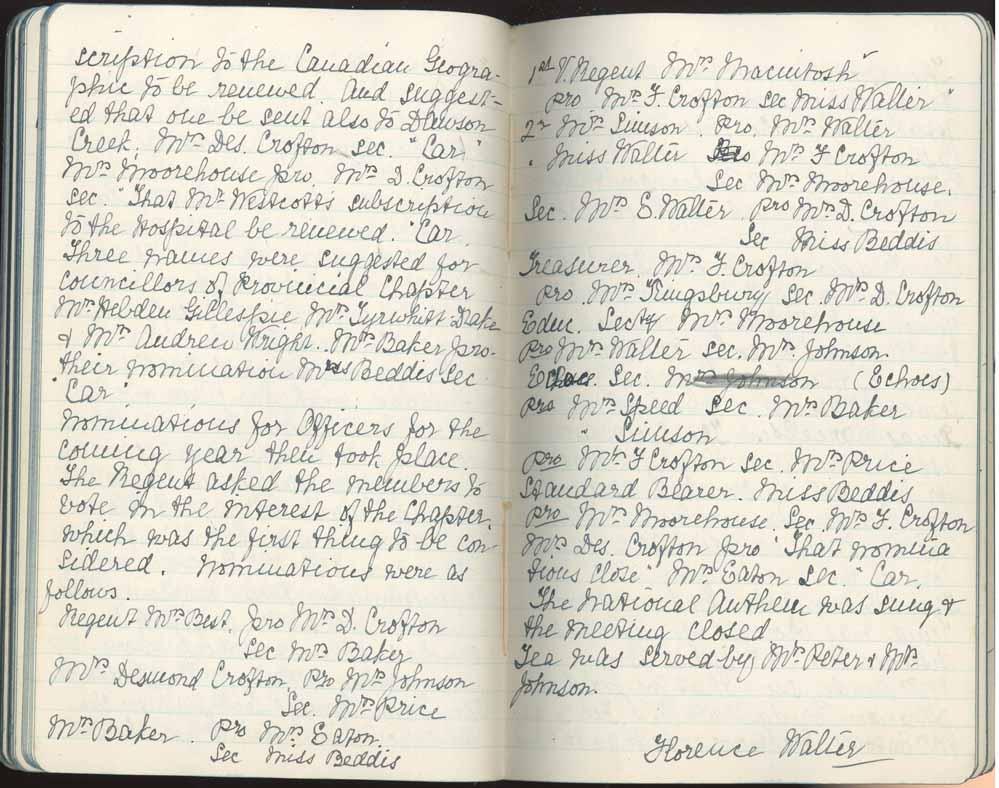 scription to the Canadian Geogra-
phic to be renewed. And suggest-
ed that one be sent also to Dawson
Creek. Mrs Des. Crofton sec. "Car"
Mrs Moorehouse pro. Mrs D. Crofton
sec. "That Mr Westcotts subscription
to the Hospital be renewed. "Car.
Three names were suggested for
Councillors of Provincial Chapter
Mrs Hebden Gillespie Mrs Tyrwhitt-Drake
& Mrs Andrew Wright. Mrs Baker pro.
their nomination Miss Beddis Sec
"Car"
Nominations for Officers for the
coming year then took place.
The Regent asked the members to
vote in the interest of the Chapter.
which was the first thing to be con
sidered. Nominations were as
follows.
Regent Mrs Best. pro Mrs D. Crofton
Sec Mrs Baker
Mrs Desmond Crofton Pro Mrs Johnson
Sec. Mrs Price
Mrs Baker. Pro Mrs Eaton
Sec Miss Beddis
1st V. Regent Mrs Macintosh
pro. Mrs F. Crofton sec Miss Walter"
2nd Mrs Simson. Pro. Mrs Walter
" Miss Walter Pro Mrs F Crofton
Sec Mrs Moorehouse.
Sec. Mrs E. Walter pro Mrs D. Crofton
Sec Miss Beddis
Treasurer Mrs F. Crofton
pro. Mrs Kingsbury Sec. Mrs D. Crofton
Educ. Secty Mrs Moorehouse
pro Mrs Walter sec. Mrs Johnson.
Sec. Mrs Johnson (Echoes)
pro Mrs Speed Sec. Mrs Baker
" Simson
pro Mrs F Crofton sec. Mrs Price
Standard Bearer. Miss Beddis
pro Mrs Moorehouse. Sec Mrs F. Crofton
Mrs Des. Crofton pro "That nomina
tions close" Mrs Eaton sec. "Car.
The National Anthem was sung &
the meeting closed
Tea was served by Mrs Peter & Mrs
Johnson.
Florence Walter